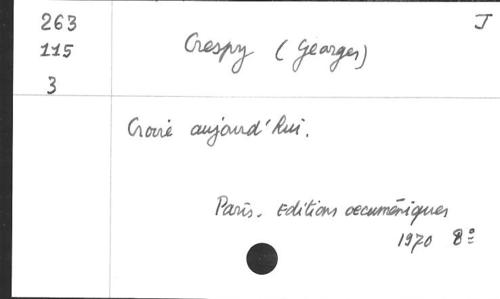 263 J
115 Crespy (Georges)
3
Croire aujourd'hui.
Paris. Editions oecuméniques
1970 8º